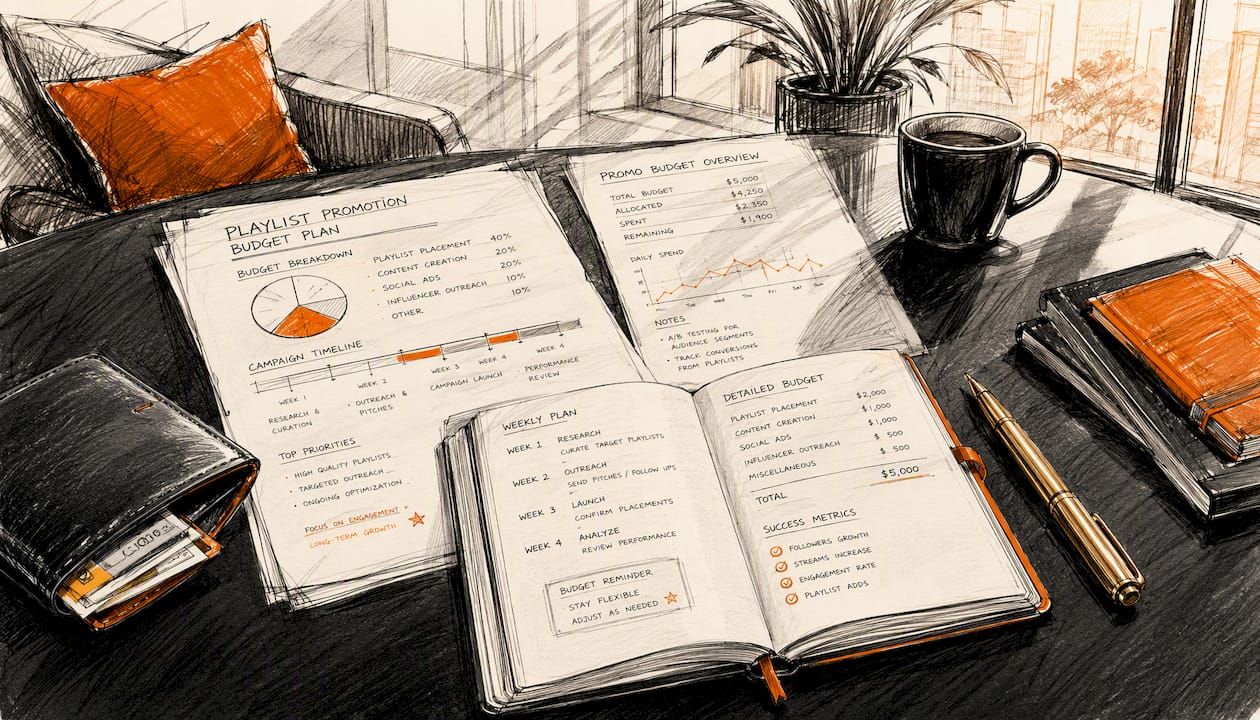 PLAYLIST PROMOTION
BUDGET PLAN
BUDGET BREAKDOWN
PLAYLIST PLACEMENT 40%
CONTENT CREATION 20%
SOCIAL ADS 20%
INFLUENCER OUTREACH 10%
OTHER 10%
CAMPAIGN TIMELINE
WEEK 1
RESEARCH &
CURATION
WEEK 2
• OUTREACH &
PITCHES
WEEK 3
WEEK 4
CAMPAIGN LAUNCH
WEEK 4
PERFORMANCE
REVIEW
TOP PRIORITIES
• HIGH QUALITY PLAYLISTS
• TARGETED OUTREACH
• ONGOING OPTIMIZATION
FOCUS ON ENGAGEMENT
LONG-TERM GROWTH
PROMO BUDGET OVERVIEW
TOTAL BUDGET $5,000
ALLOCATED $4,250
SPENT $2,350
REMAINING $1,900
DAILY SPEND
Tue Wed Thu Fri Sat Sun
NOTES
• A/B TESTING FOR
AUDIENCE SEGMENTS
• TRACK CONVERSIONS
FROM PLAYLISTS
WEEKLY PLAN
WEEK 1 RESEARCH
CURATE TARGET PLAYLISTS
WEEK 2 OUTREACH
SEND PITCHES / FOLLOW UPS
WEEK 3 LAUNCH
CONFIRM PLACEMENTS
WEEK 4 ANALYZE
REVIEW PERFORMANCE
BUDGET REMINDER
STAY FLEXIBLE
ADJUST AS NEEDED
DETAILED BUDGET
PLAYLIST PLACEMENT $2,000
CONTENT CREATION $1,000
SOCIAL ADS $1,000
INFLUENCER OUTREACH $ 500
MISCELLANEOUS $ 500
TOTAL $5,000
SUCCESS METRICS
FOLLOWERS GROWTH
STREAMS INCREASE
ENGAGEMENT RATE
PLAYLIST ADDS